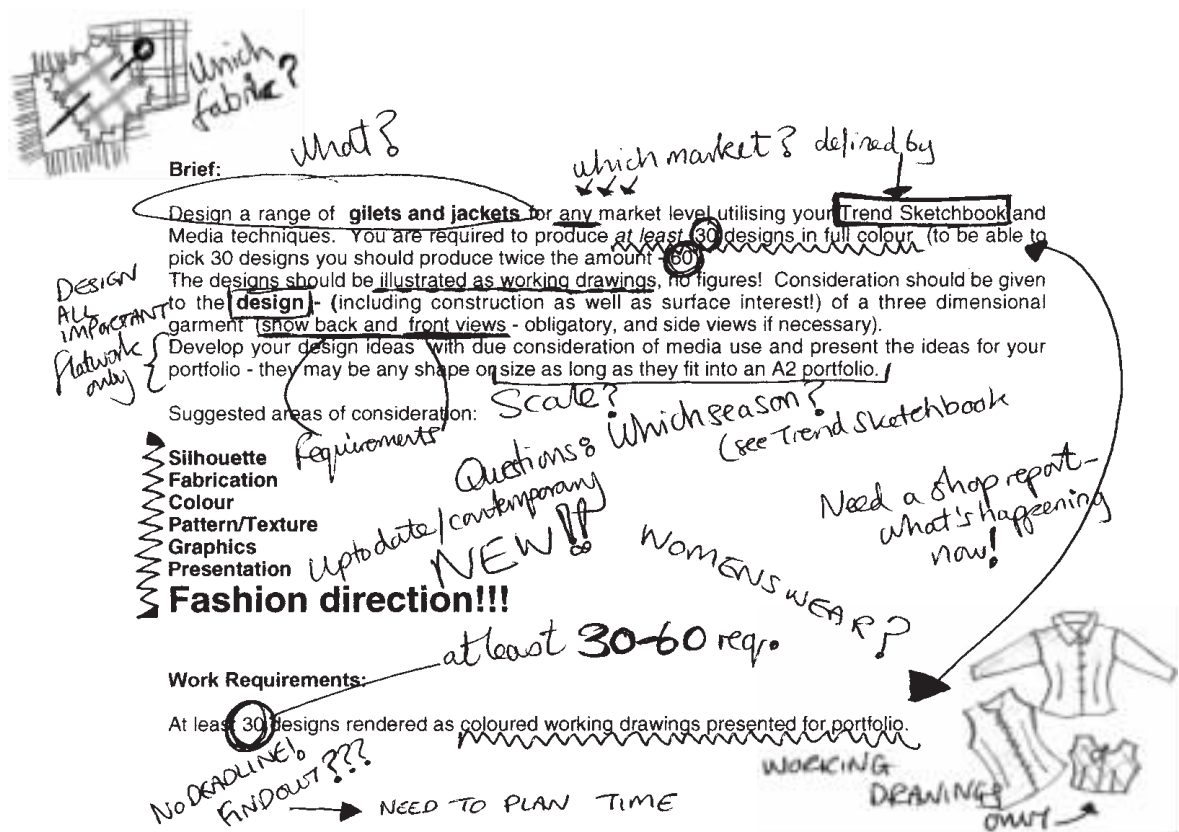 Which
fabric?
What?
which market? defined by
Brief:
Design a range of gilets and jackets for any market level utilising your Trend Sketchbook and
Media techniques. You are required to produce at least 30 designs in full colour (to be able to
pick 30 designs you should produce twice the amount - 60)
The designs should be illustrated as working drawings, no figures! Consideration should be given
to the design - (including construction as well as surface interest!) of a three dimensional
garment (show back and front views - obligatory, and side views if necessary).
Develop your design ideas with due consideration of media use and present the ideas for your
portfolio - they may be any shape or size as long as they fit into an A2 portfolio.
DESIGN
ALL
IMPORTANT
Flatwork
only
Suggested areas of consideration:
Scale?
requirements
Questions: Which season?
(see Trend Sketchbook
Silhouette
Fabrication
Colour
Pattern/Texture
Graphics
Presentation
Fashion direction!!!
Up to date/contemporary
NEW!!
Need a shop report -
what's happening
now!
WOMENSWEAR?
at least 30-60 req.
Work Requirements:
At least 30 designs rendered as coloured working drawings presented for portfolio.
NO DEADLINE!
FIND OUT???
NEED TO PLAN TIME
WORKING
DRAWINGS
ONLY